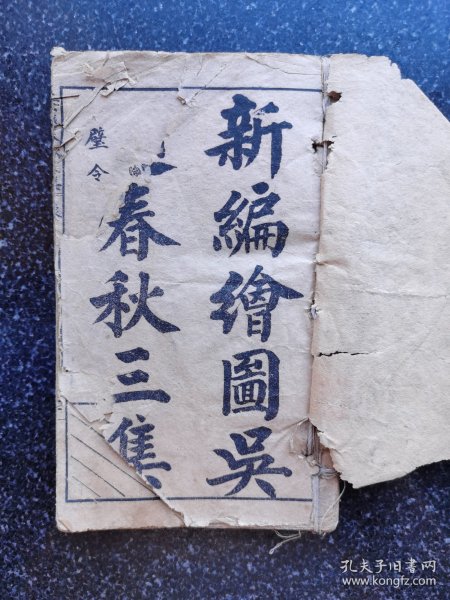 新編繪圖吳
春秋三集
璧令
孔夫子旧书网
www.kongfz.com